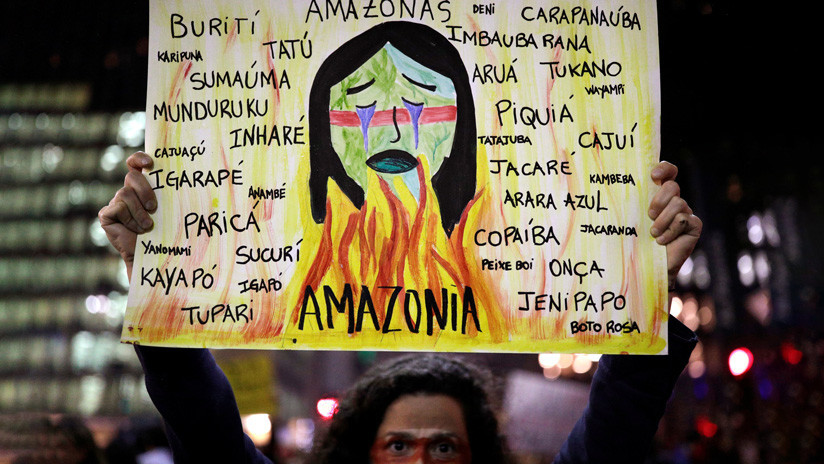 AMAZONAS
DENI
CARAPANAÚBA
BURITÍ
KARIPUNA
TATÚ
IMBAUBARANA
SUMAÚMA
ARUÁ
TUKANO
WAYAMPI
MUNDURUKU
PIQUIÁ
INHARÉ
TATAJUBA
CAJUÍ
CAJUAÇÚ
IGARAPÉ
JACARÉ
KAMBEBA
ANAMBÉ
ARARA AZUL
PARICÁ
COPAÍBA
JACARANDA
YANOMAMI
SUCURÍ
PEIXE BOI
ONÇA
KAYAPÓ
IGAPÓ
AMAZONIA
JENIPAPO
TUPARI
BOTO ROSA